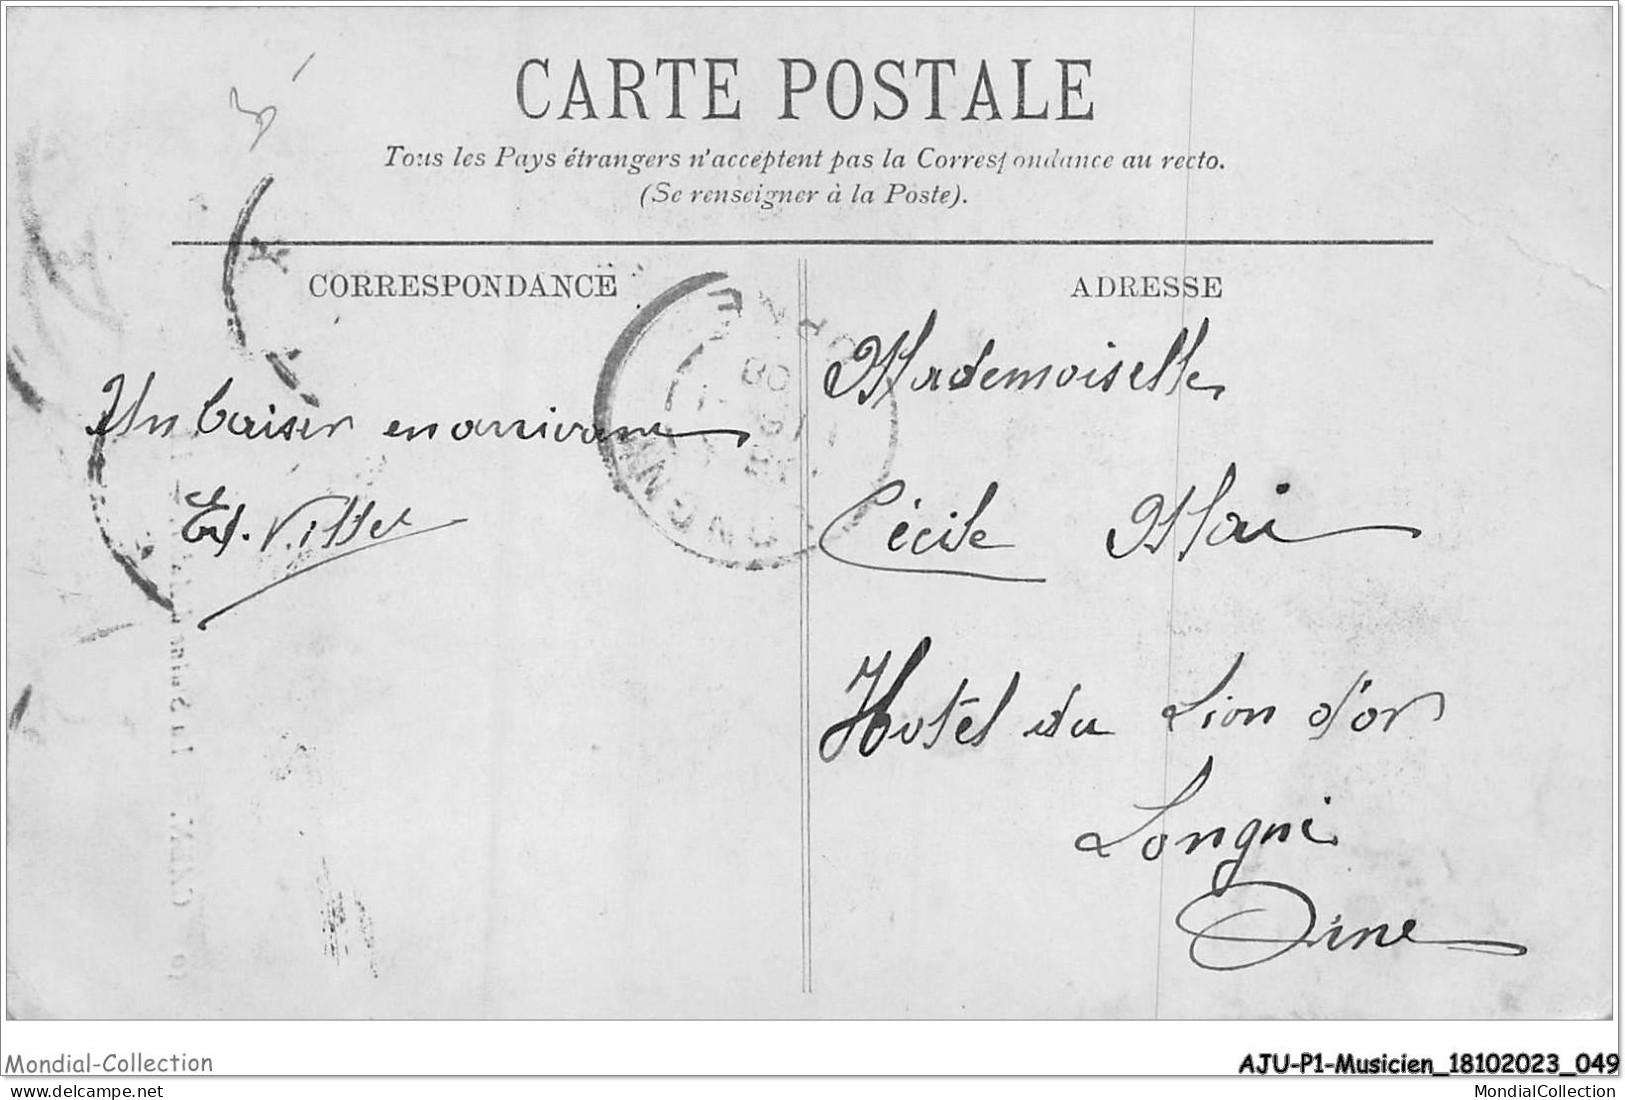 CARTE POSTALE
Tous les Pays étrangers n'acceptent pas la Correspondance au recto.
(Se renseigner à la Poste).
CORRESPONDANCE
Un baiser en arrivant
ADRESSE
Mademoiselle
Cécile Mai
Hotêl du Lion d'or
Longni
Orne
Mondial-Collection
AJU-P1-Musicien_18102023_049
MondialCollection